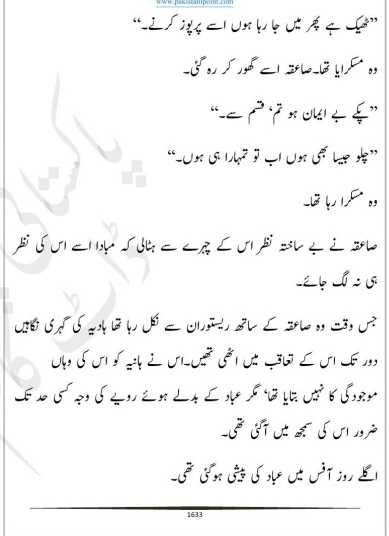 www.pakistanipoint.com
”ٹھیک ہے پھر میں جا رہا ہوں اسے پرپوز کرنے۔“
وہ مسکرایا تھا۔صاعقہ اسے گھور کر رہ گئی۔
”پکے بے ایمان ہو تم‘ قسم سے۔“
”چلو جیسا بھی ہوں اب تو تمہارا ہی ہوں۔“
وہ مسکرا رہا تھا۔
صاعقہ نے بے ساختہ نظر اس کے چہرے سے ہٹالی کہ مبادا اسے اس کی نظر
ہی نہ لگ جائے۔
جس وقت وہ صاعقہ کے ساتھ ریستوران سے نکل رہا تھا ہادیہ کی گہری نگاہیں
دور تک اس کے تعاقب میں اٹھی تھیں۔اس نے ہانیہ کو اس کی وہاں
موجودگی کا نہیں بتایا تھا‘ مگر عباد کے بدلے ہوئے رویے کی وجہ کسی حد تک
ضرور اس کی سمجھ میں آگئی تھی۔
اگلے روز آفس میں عباد کی پیشی ہوگئی تھی۔
1633